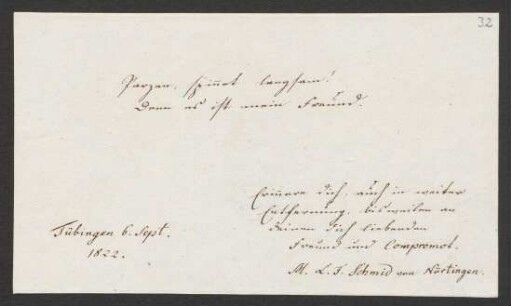 32
Parzen, spinnet langsam!
Denn es ist mein Freund.
Erinnre dich, auch in weiter
Entfernung, bisweilen an
deinen dich liebenden
Freund und Compromot.
M. L. F. Schmid von Nürtingen.
Tübingen 6. Sept.
1822.